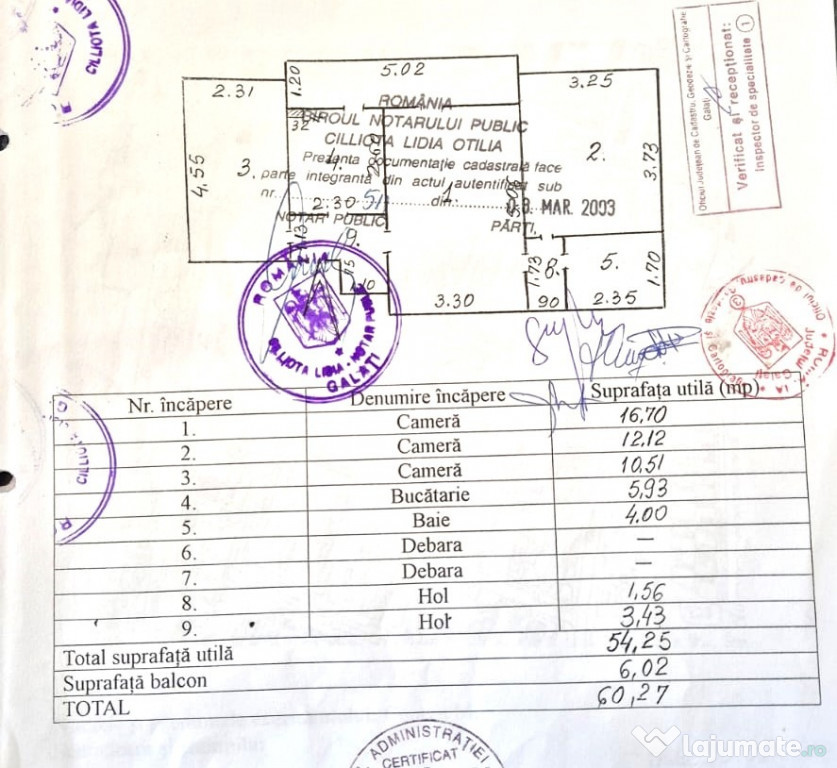 CILLIOTA LIDIA
Oficiul Județean de Cadastru, Geodezie și Cartografie
Galați
Verificat și recepționat:
Inspector de specialitate 1
5.02
1.20
2.31
3.25
ROMÂNIA
BIROUL NOTARULUI PUBLIC
32
CILLIOTA LIDIA OTILIA
2.
4.55
3.
4.
3.73
Prezenta documentație cadastrală face
parte integrantă din actul autentificat sub
nr. 51 din 03. MAR. 2003
2.30
1.
NOTAR PUBLIC
PĂRȚI,
9.
8.
5.
1.73
1.70
3.30
90
2.35
ROMANIA
CILLIOTA LIDIA - NOTAR PUBLIC
GALATI
Nr. încăpere Denumire încăpere Suprafața utilă (mp)
1. Cameră 16,70
2. Cameră 12,12
3. Cameră 10,51
4. Bucătarie 5,93
5. Baie 4.00
6. Debara —
7. Debara —
8. Hol 1,56
9. Hol 3,43
Total suprafață utilă 54,25
Suprafață balcon 6,02
TOTAL 60,27
CILLIOTA
ADMINISTRATIEI
CERTIFICAT
lajumate.ro